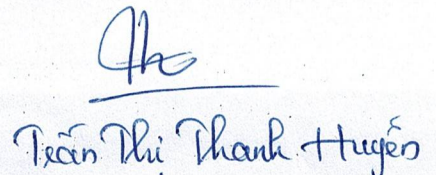 Trần Thị Thanh Huyền